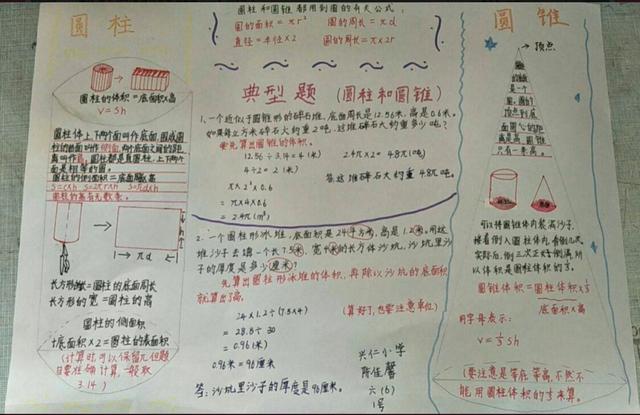 圆柱
圆柱的体积=底面积×高
V=Sh
圆柱体上下两个面叫作底面,围成圆
柱的曲面叫作侧面,两个底面之间的距
离叫作高。圆柱都是直圆柱,上下两个
面是相等的圆。
圆柱的侧面积=底面周长×高
圆柱的高有无数条。
πd
长方形的长=圆柱的底面周长
长方形的宽=圆柱的高
圆柱的侧面积
+底面积×2=圆柱的表面积
(计算时可以保留π但题
目要准确计算一般取
3.14)
圆柱和圆锥都用到圆的有关公式:
圆的面积=πr² 圆的周长=πd
直径=半径×2 圆的周长=π×2r
典型题(圆柱和圆锥)
1.一个近似于圆锥形的碎石堆,底面周长是12.56米,高是0.6米。
如果每立方米碎石大约重2吨,这堆碎石大约重多少吨?
要先算出圆锥的体积。
12.56÷3.14=4(米) 2.4π×2=4.8π(吨)
4÷2=2(米)
答:这堆碎石大约重4.8π吨。
π×2²×0.6
=π×4×0.6
=2.4π(m³)
2.一个圆柱形冰堆,底面积是24平方米,高是1.2米。用这
堆沙子去填一个长7.5米、宽4米的长方体沙坑,沙坑里沙
子的厚度是多少厘米?
先算出圆柱形冰堆的体积,再除以沙坑的底面积
就算出了高。
(算好了,也要注意单位)
24×1.2÷(7.5×4)
=28.8÷30
=0.96(米)
0.96米=96厘米
答:沙坑里沙子的厚度是96厘米。
兴仁小学
六(6)
1号
圆锥
顶点
圆锥
的底面
是一个
圆,圆锥的
顶点到底
面圆心的距
离是高,圆锥
只有一条高。
可以将圆锥体内装满沙子,
接着倒入圆柱体内,看倒几次
实际后,倒三次正好倒满,所
以体积是圆柱体积的⅓。
圆锥体积=圆柱体积×⅓
底面积×高
用字母表示:
V=⅓Sh
(要注意是等底等高,不然不
能用圆柱体积的⅓来算。